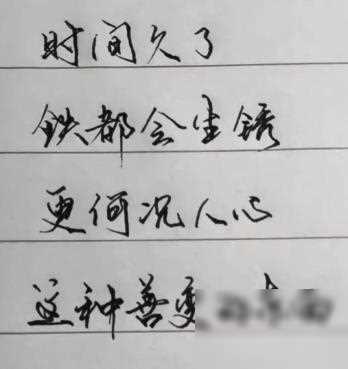 时间久了
铁都会生锈
更何况人心
这种善变